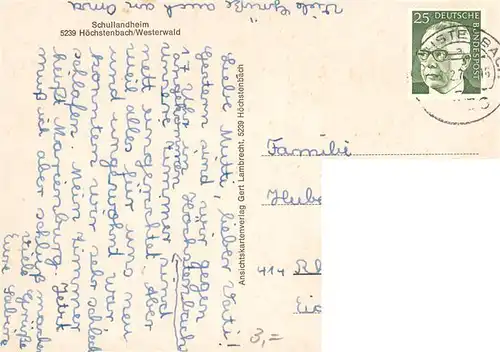 Viele Grüße auch an Oma
Schullandheim
5239 Höchstenbach/Westerwald
Liebe Mutti, lieber Vati!
Gestern sind wir gegen
17 Uhr in Höchstenbach
angekommen.
unsere Zimmer sind
nett eingerichtet. Aber
weil alles für uns neu
und ungewohnt war
konnten wir sehr schlecht
schlafen. Mein Zimmer
heißt Marienburg. Jetzt
muß ich aber schluß machen
Viele Grüße
Eure Sabine
Ansichtskartenverlag Gert Lambrecht, 5239 Höchstenbach
25 DEUTSCHE
BUNDESPOST
Familie
Hube
414 Rh
3,=